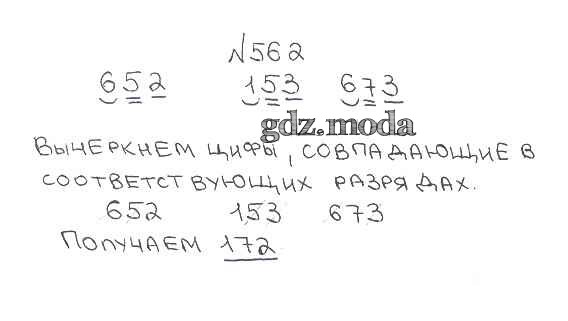 №562
652 153 673
gdz.moda
Вычеркнем цифры, совпадающие в
соответствующих разрядах.
652 153 673
Получаем 172